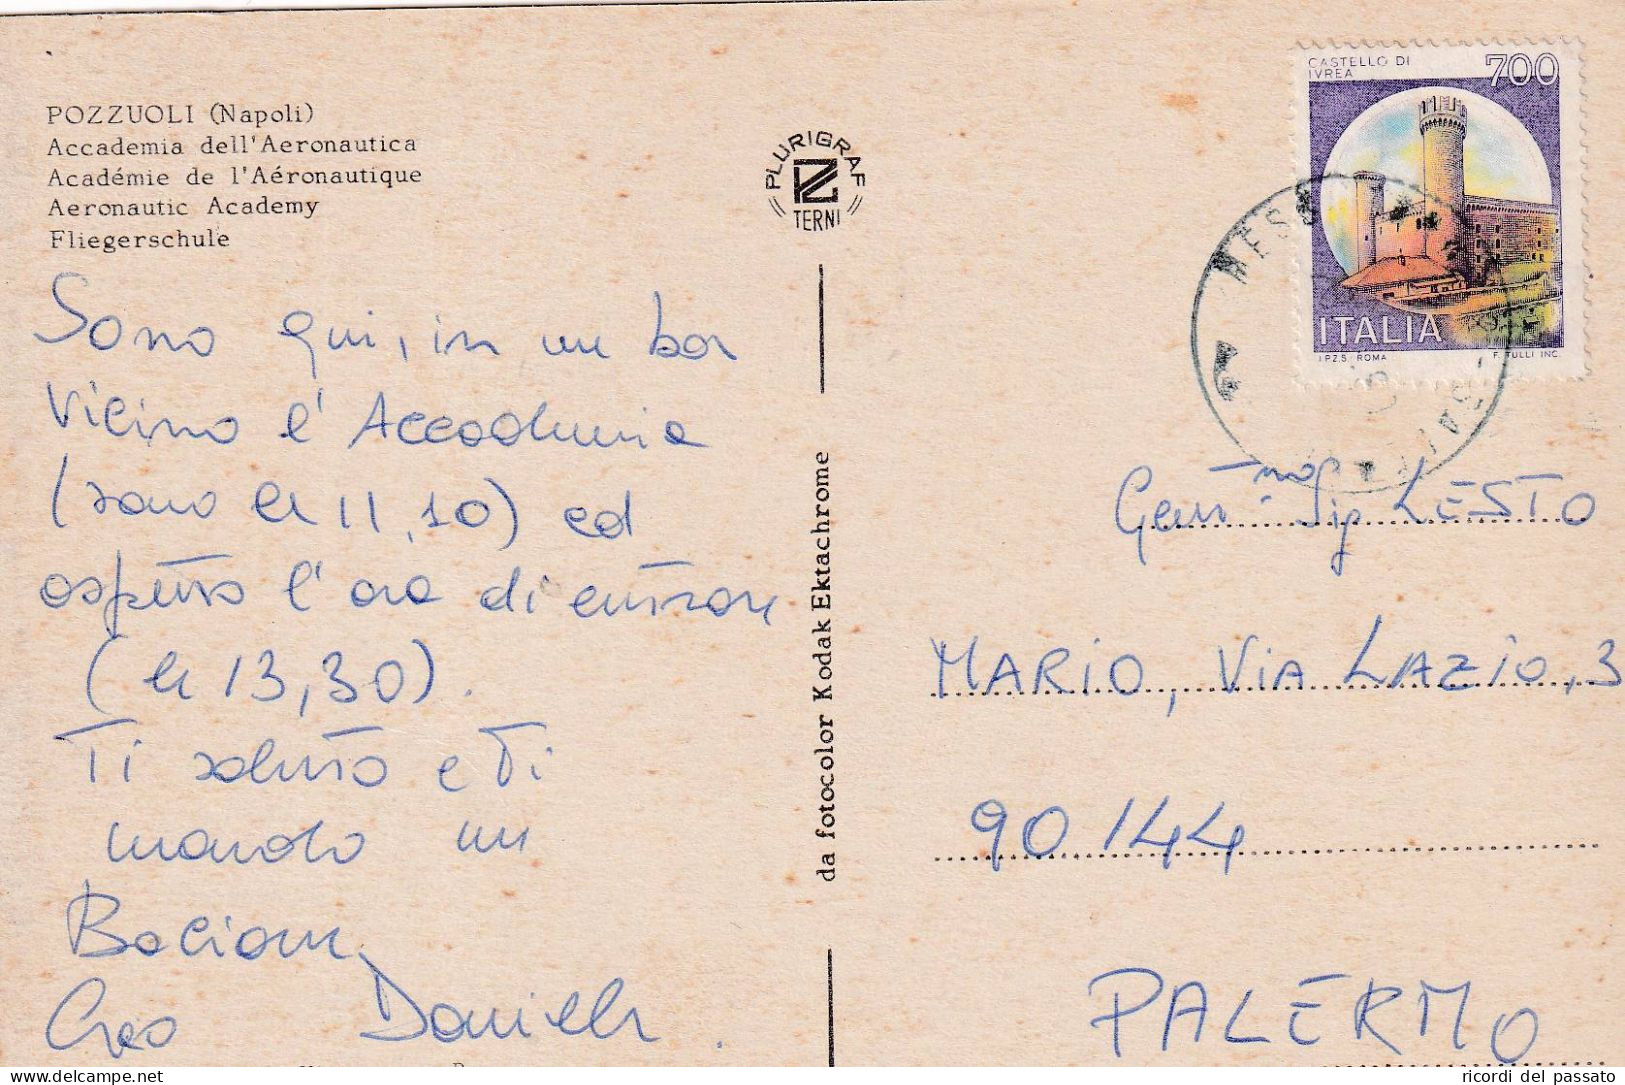 POZZUOLI (Napoli)
Accademia dell'Aeronautica
Académie de l'Aéronautique
Aeronautic Academy
Fliegerschule
Sono qui, in un bar
vicino l'Accademia
(sono le 11,10) ed
aspetto l'ora di entrare
(le 13,30).
Ti saluto e ti
mando un
Bacione.
Ciao Daniela.
PLURIGRAF
TERNI
da fotocolor Kodak Ektachrome
CASTELLO DI
IVREA
700
ITALIA
I.P.Z.S. ROMA F. TULLI INC.
Gent.mo Sig LESTO
MARIO, VIA LAZIO, 3
90144
PALERMO
ricordi del passato